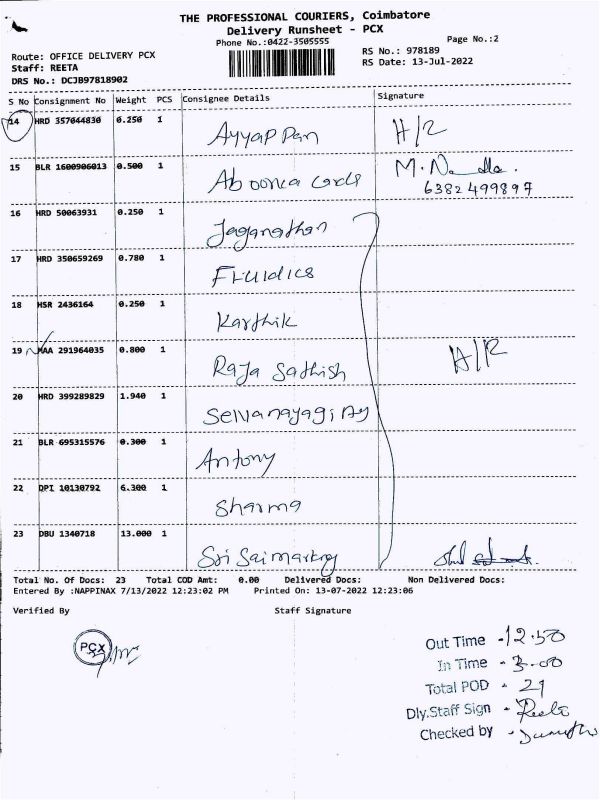 THE PROFESSIONAL COURIERS, Coimbatore
Delivery Runsheet - PCX
Phone No.:0422-3505555
Page No.:2
Route: OFFICE DELIVERY PCX
RS No.: 978189
Staff: REETA
RS Date: 13-Jul-2022
DRS No.: DCJB97818902
S No Consignment No Weight PCS Consignee Details Signature
14 HRD 357044830 0.250 1 Ayyappan H/R
15 BLR 1600906013 0.500 1 M.
6382499897
16 HRD 50063931 0.250 1 Jaganathan
17 HRD 350659269 0.780 1 Fluidics
18 HSR 2436164 0.250 1 Karthik
19 MAA 291964035 0.800 1 Raja Sathish H/R
20 HRD 399289829 1.940 1
21 BLR 695315576 0.300 1 Antony
22 OPI 10130792 6.300 1 Sharma
23 DBU 1340718 13.000 1 Sri Sai
Total No. Of Docs: 23 Total COD Amt: 0.00 Delivered Docs: Non Delivered Docs:
Entered By :NAPPINAX 7/13/2022 12:23:02 PM Printed On: 13-07-2022 12:23:06
Verified By Staff Signature
PCX
Out Time - 12.50
In Time - 3.00
Total POD - 21
Dly.Staff Sign - Reeta
Checked by -